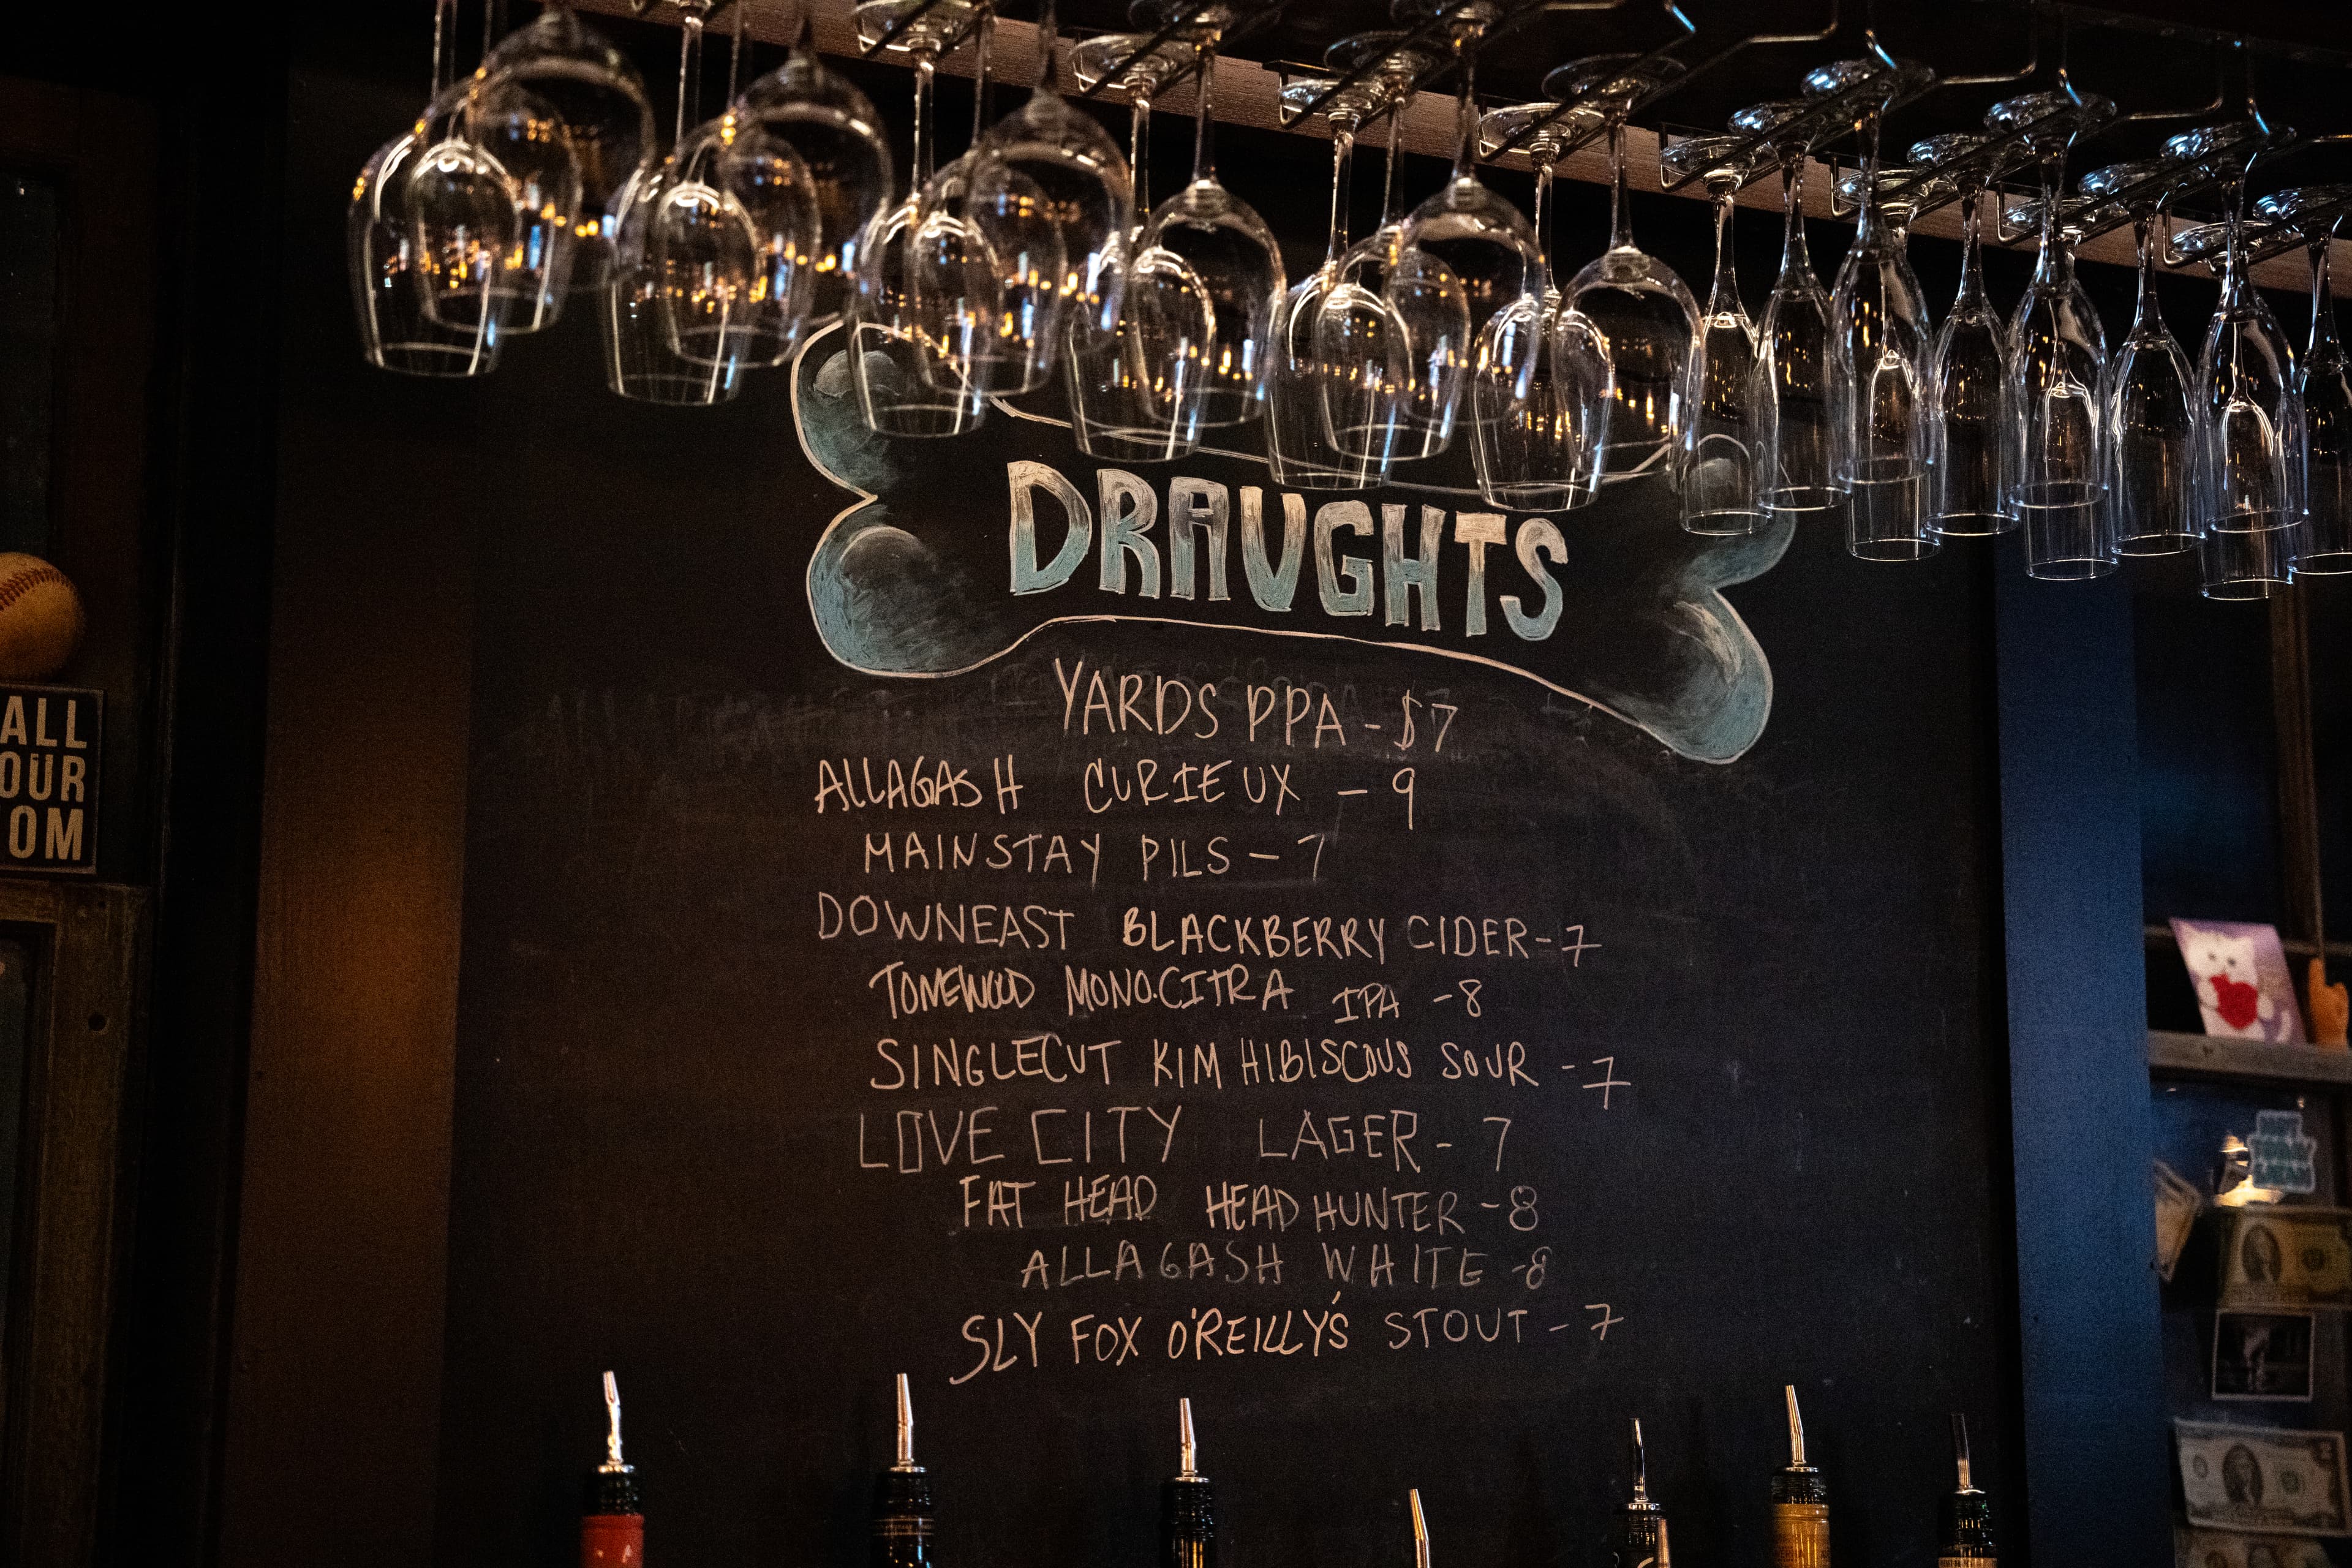 DRAUGHTS
YARDS PPA - $7
ALLAGASH CURIEUX - 9
MAINSTAY PILS - 7
DOWNEAST BLACKBERRY CIDER - 7
TONEWOOD MONO.CITRA IPA - 8
SINGLECUT KIM HIBISCUS SOUR - 7
LOVE CITY LAGER - 7
FAT HEAD HEAD HUNTER - 8
ALLAGASH WHITE - 8
SLY FOX O'REILLY'S STOUT - 7
ALL
OUR
OM